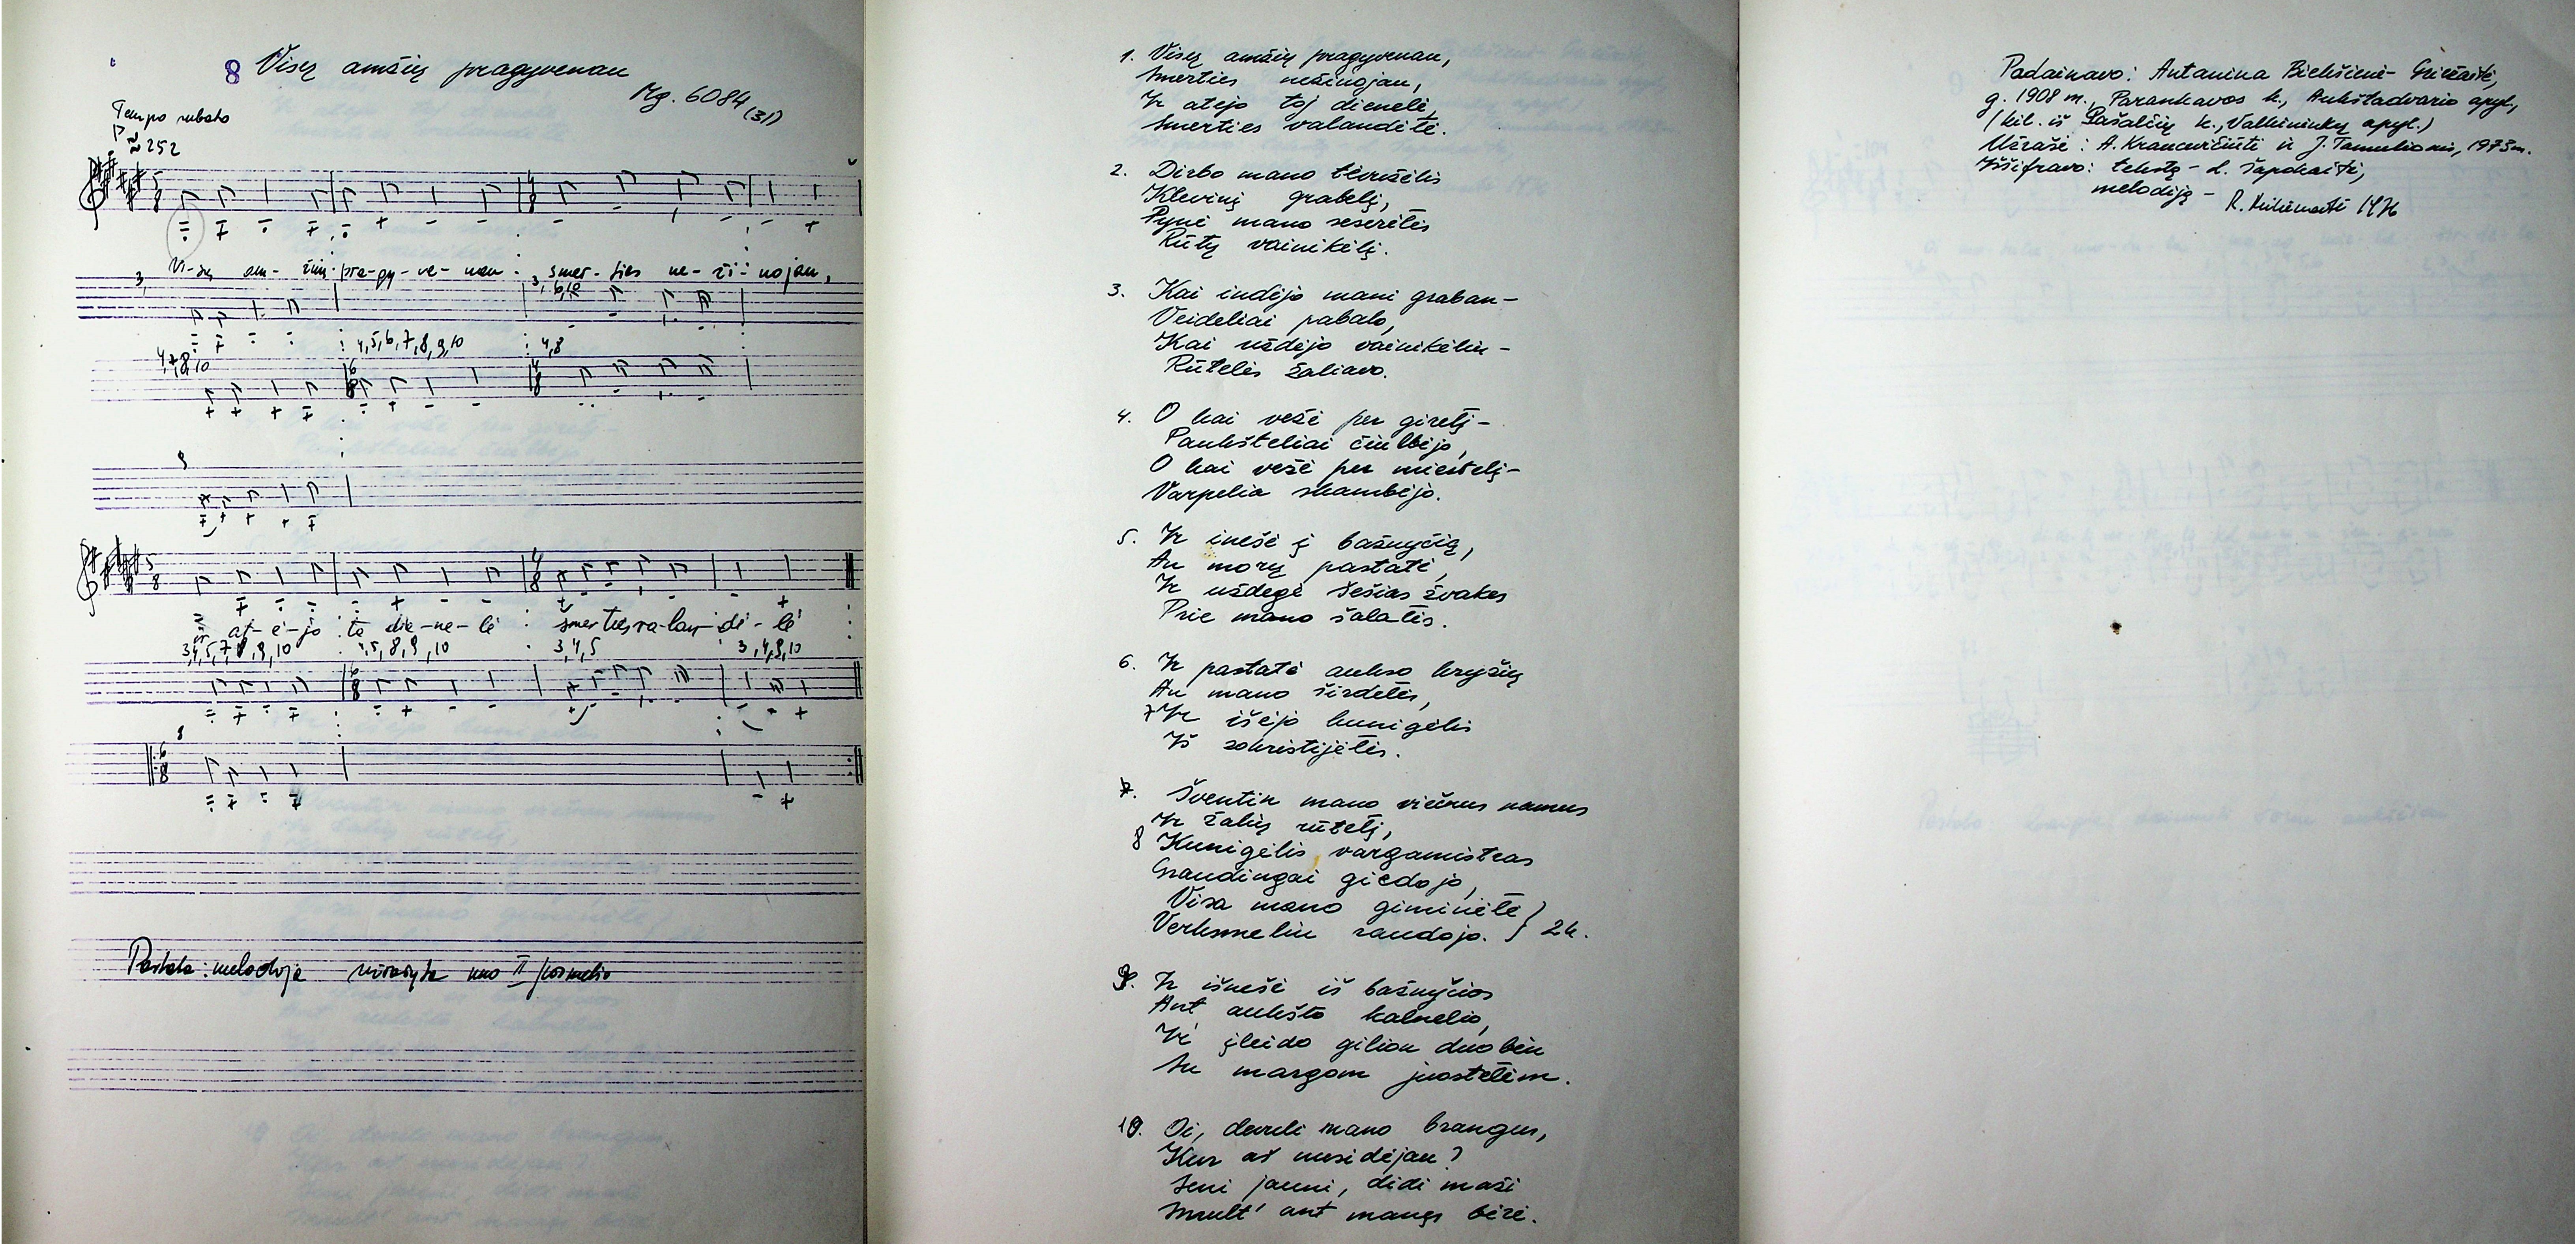 8 Visų amžių pragyvenau
Mg. 6084 (31)
Tempo rubato
≈ 252
Vi-sų am-žių pra-gy-ve-nau smer-ties ne-ži-nojau,
3,
3, 6,10
4,5,6,7,8,9,10
4,8
4,7,8,10
9
ir at-ė-jo ta die-ne-lė smerties va-lan-dė-lė
3,4,5
8
Pastaba: melodija užrašyta nuo II posmelio
1. Visų amžių pragyvenau,
Smerties nežinojau,
Ir atėjo toj dienelė,
Smerties valandėlė.
2. Dirbo mano brolelis
Klevinį grabelį,
Pynė mano seserėlės
Rūtų vainikėlį.
3. Kai indėjo mani graban –
Veideliai pabalo,
Kai uždėjo vainikėliu –
Rūtelės žaliavo.
4. O kai vežė per girelį –
Paukšteliai čiulbėjo,
O kai vežė per miestelį –
Varpelia skambėjo.
5. Ir inešė į bažnyčią,
An morų pastatė,
Ir uždegė šešias žvakes
Prie mano šalalės.
6. Ir pastatė aukso kryžių
An mano širdelės,
7 Ir išėjo kunigėlis
Iš zokristijėlės.
7. Šventin mano viečnus namus
Ir žalių rūtelį,
8 Kunigėlis vargamistras
Graudingai giedojo,
Visa mano giminėlė
Verksmeliu raudojo. } 2k.
9. Ir išnešė iš bažnyčios
Ant aukšto kalnelio,
Ir įleido gilion duobėn
Su margom juostelėm.
10. Oi, dieveli mano brangus,
Kur aš nusidėjau?
Seni jauni, didi maži
Smult' ant manęs bėrė.
Padainavo: Antanina Bielišienė-
g. 1908 m., Parankavos k., Aukštadvario apyl.,
(kil. iš Pašalčių k., Valkininkų apyl.)
Užrašė: A. Krancevičiūtė ir J. Tamulionis, 1973 m.
Iššifravo: tekstą – L. Sapokaitė,
melodiją – R. 1976